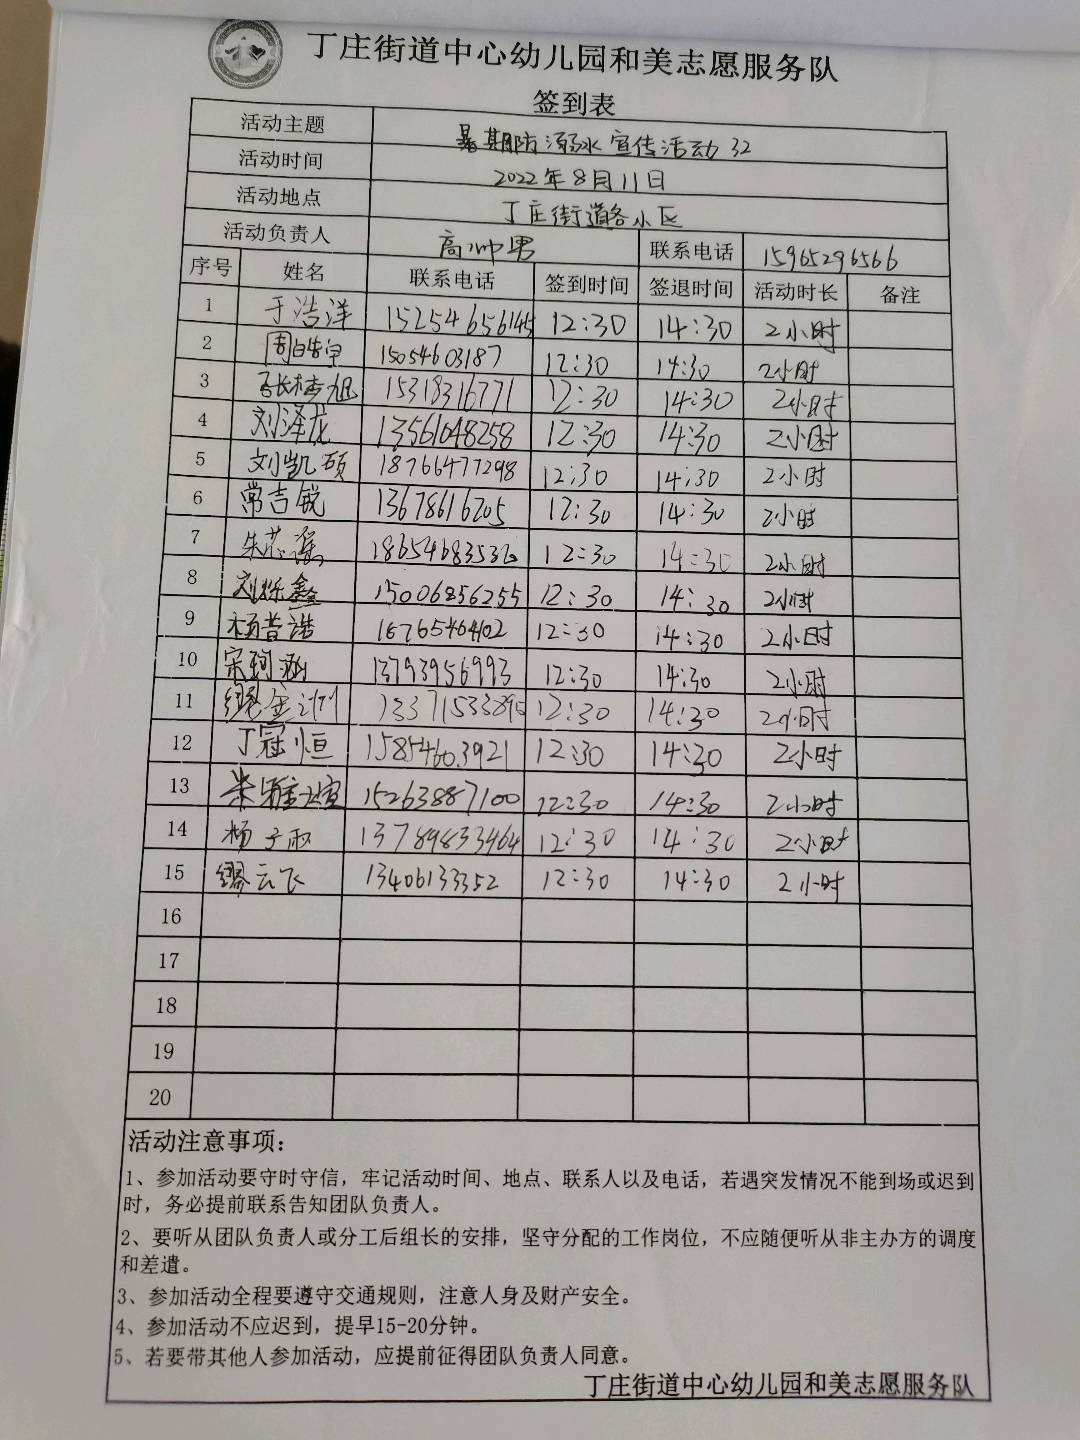 丁庄街道中心幼儿园和美志愿服务队
签到表
活动主题 暑期防溺水宣传活动32
活动时间 2022年8月11日
活动地点 丁庄街道各小区
活动负责人 高帅男 联系电话 15965296566
序号 姓名 联系电话 签到时间 签退时间 活动时长 备注
1 于浩洋 15254656145 12:30 14:30 2小时
2 15054603187 12:30 14:30 2小时
3 15318316771 12:30 14:30 2小时
4 刘泽龙 13561048258 12:30 14:30 2小时
5 刘凯硕 18766477298 12:30 14:30 2小时
6 常吉锐 13678616205 12:30 14:30 2小时
7 朱芯瑶 12:30 14:30 2小时
8 刘烁鑫 15006856255 12:30 14:30 2小时
9 杨皓 16765464402 12:30 14:30 2小时
10 宋珂涵 13793956993 12:30 14:30 2小时
11 12:30 14:30 2小时
12 丁冠恒 15854603921 12:30 14:30 2小时
13 15263887100 12:30 14:30 2小时
14 杨子和 13789833464 12:30 14:30 2小时
15 缪云飞 13406133352 12:30 14:30 2小时
16
17
18
19
20
活动注意事项：
1、参加活动要守时守信，牢记活动时间、地点、联系人以及电话，若遇突发情况不能到场或迟到
时，务必提前联系告知团队负责人。
2、要听从团队负责人或分工后组长的安排，坚守分配的工作岗位，不应随便听从非主办方的调度
和差遣。
3、参加活动全程要遵守交通规则，注意人身及财产安全。
4、参加活动不应迟到，提早15-20分钟。
5、若要带其他人参加活动，应提前征得团队负责人同意。
丁庄街道中心幼儿园和美志愿服务队